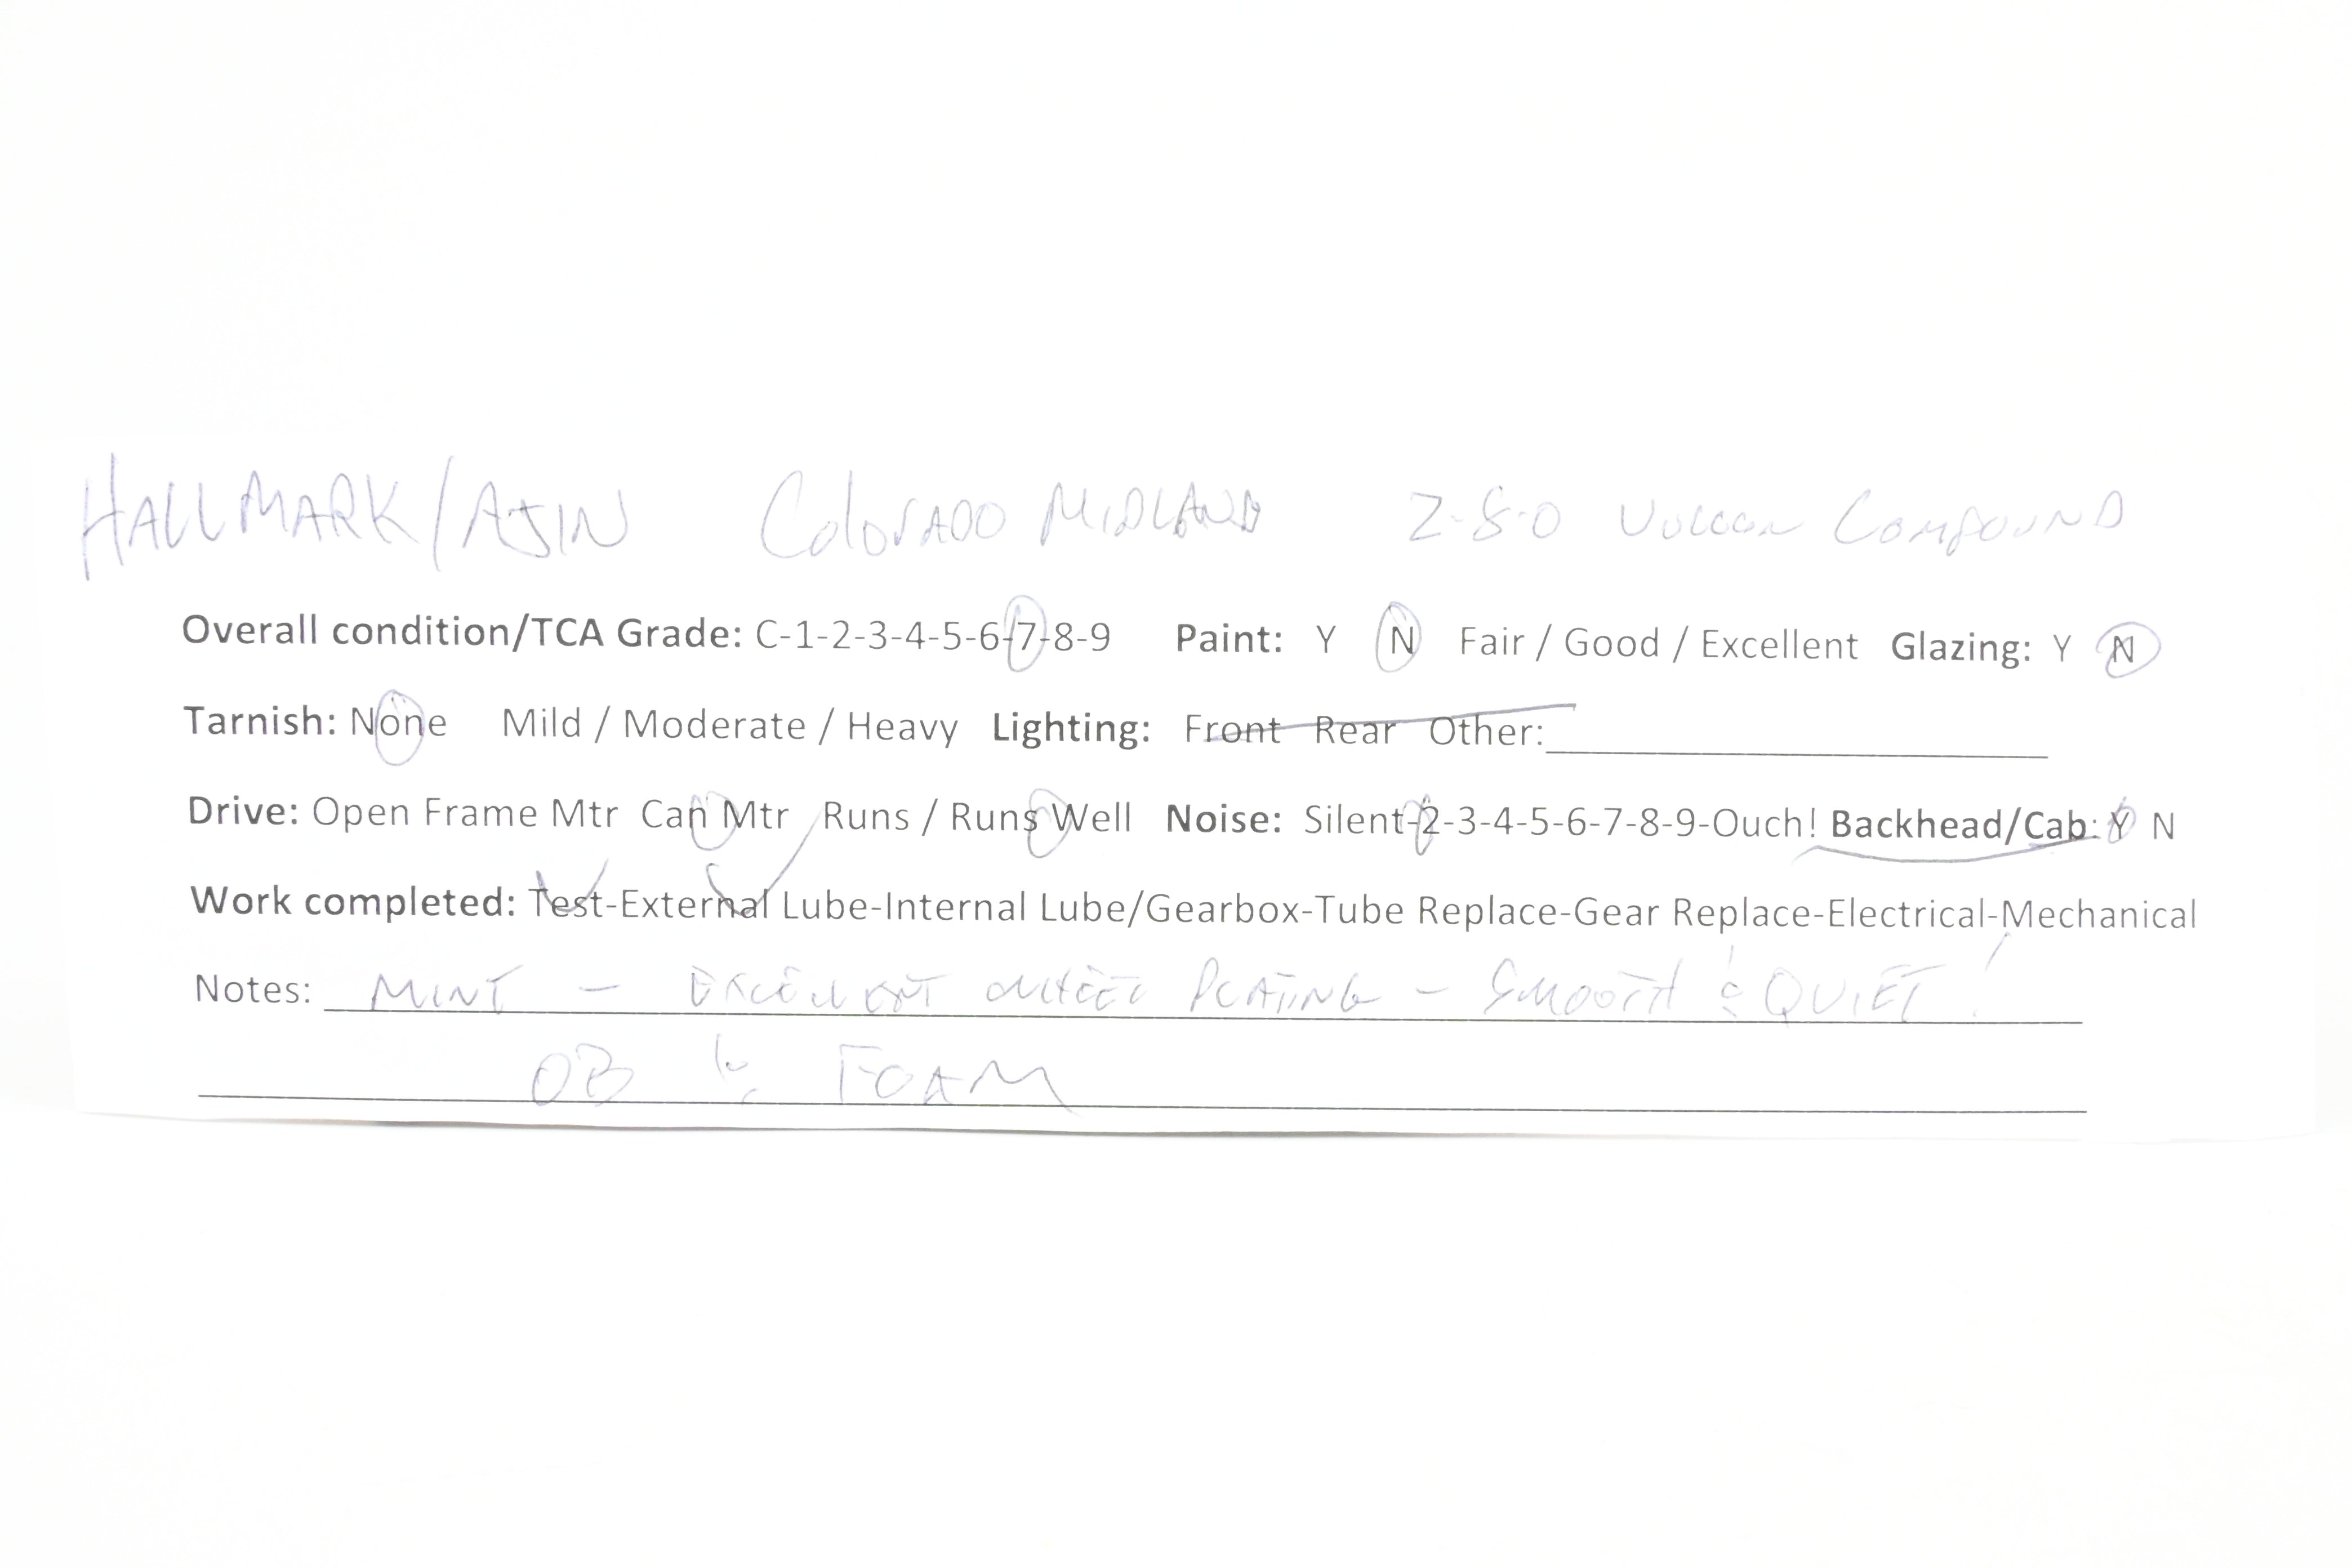 HALLMARK/AJIN Colorado Midland 2-8-0 Vulcan Compound
Overall condition/TCA Grade: C-1-2-3-4-5-6-7-8-9 Paint: Y N Fair / Good / Excellent Glazing: Y N
Tarnish: None Mild / Moderate / Heavy Lighting: Front Rear Other:
Drive: Open Frame Mtr Can Mtr Runs / Runs Well Noise: Silent-2-3-4-5-6-7-8-9-Ouch! Backhead/Cab: Y N
Work completed: Test-External Lube-Internal Lube/Gearbox-Tube Replace-Gear Replace-Electrical-Mechanical
Notes: MINT - EXCELLENT PLATING - SMOOTH & QUIET!
OB & FOAM